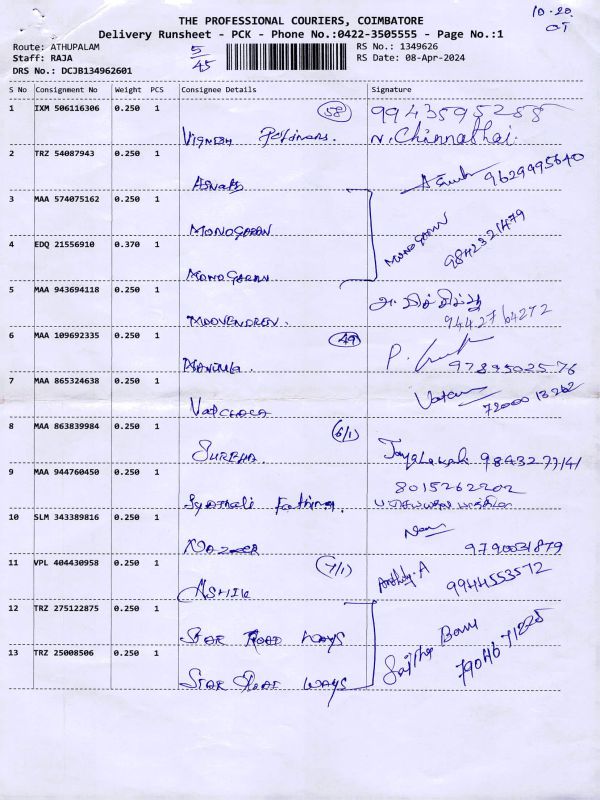 10-20
OT
THE PROFESSIONAL COURIERS, COIMBATORE
Delivery Runsheet - PCK - Phone No.:0422-3505555 - Page No.:1
Route: ATHUPALAM 5/45 RS No.: 1349626
Staff: RAJA RS Date: 08-Apr-2024
DRS No.: DCJB134962601
S No Consignment No Weight PCS Consignee Details Signature
1 IXM 506116306 0.250 1 58 9943595255
Vignesh N. Chinnathai
2 TRZ 54087943 0.250 1 9629995640
3 MAA 574075162 0.250 1 MONOGARAN MONOGARAN
4 EDQ 21556910 0.370 1 MONOGARAN 9842321479
5 MAA 943694118 0.250 1 MOOVENDREN. 9442764272
6 MAA 109692335 0.250 1 49 P. 9789502576
7 MAA 865324638 0.250 1 7200013262
8 MAA 863839984 0.250 1 6/1 SUREHA. 9843277141
9 MAA 944760450 0.250 1 Fathima. 8015262202
10 SLM 343389816 0.250 1 NAZEER 9790031879
11 VPL 404430958 0.250 1 7/1 ASHIK A 9944553572
12 TRZ 275122875 0.250 1 STAR ROAD WAYS
13 TRZ 25008506 0.250 1 STAR ROAD WAYS 7904671225